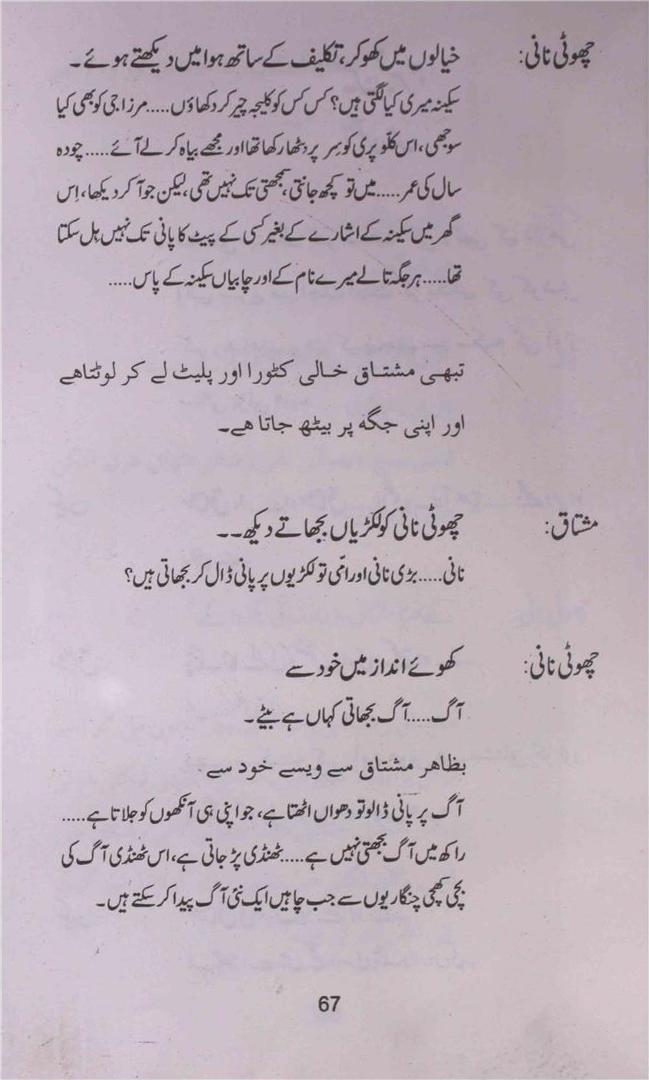 چھوٹی نانی: خیالوں میں کھوکر، تکلیف کے ساتھ ہوا میں دیکھتے ہوئے۔
سکینہ میری کیا لگتی ہیں؟ کس کس کو کلیجہ چیر کر دکھاؤں.....مرزا جی کو بھی کیا
سوجھی، اس کلّو پری کو سر پر بٹھا رکھا تھا اور مجھے بیاہ کر لے آئے.....چودہ
سال کی عمر.....میں تو کچھ جانتی سمجھتی تک نہیں تھی، لیکن جو آ کر دیکھا، اِس
گھر میں سکینہ کے اشارے کے بغیر کسی کے پیٹ کا پانی تک نہیں ہِل سکتا
تھا.....ہر جگہ تالے میرے نام کے اور چابیاں سکینہ کے پاس.....
تبھی مشتاق خالی کٹورا اور پلیٹ لے کر لوٹتاھے
اور اپنی جگه پر بیٹھ جاتا ھے۔
مشتاق: چھوٹی نانی کو لکڑیاں بجھاتے دیکھ۔۔
نانی.....بڑی نانی اور امّی تو لکڑیوں پر پانی ڈال کر بجھاتی ہیں؟
چھوٹی نانی: کھوئے انداز میں خود سے
آگ.....آگ بجھاتی کہاں ہے بیٹے۔
بظاھر مشتاق سے ویسے خود سے
آگ پر پانی ڈالو تو دھواں اٹھتا ہے، جو اپنی ہی آنکھوں کو جلاتا ہے.....
راکھ میں آگ بجھتی نہیں ہے.....ٹھنڈی پڑ جاتی ہے، اس ٹھنڈی آگ کی
بچی کھچی چنگاریوں سے جب چاہیں ایک نئی آگ پیدا کر سکتے ہیں۔
67